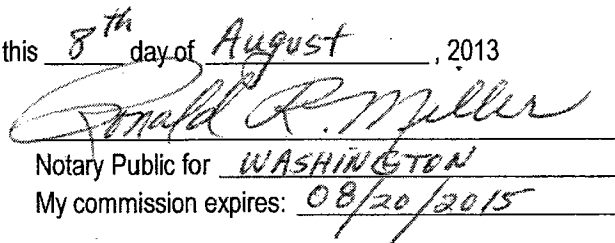 this 8th day of August, 2013
Ronald R. Miller
Notary Public for WASHINGTON
My commission expires: 08/20/2015